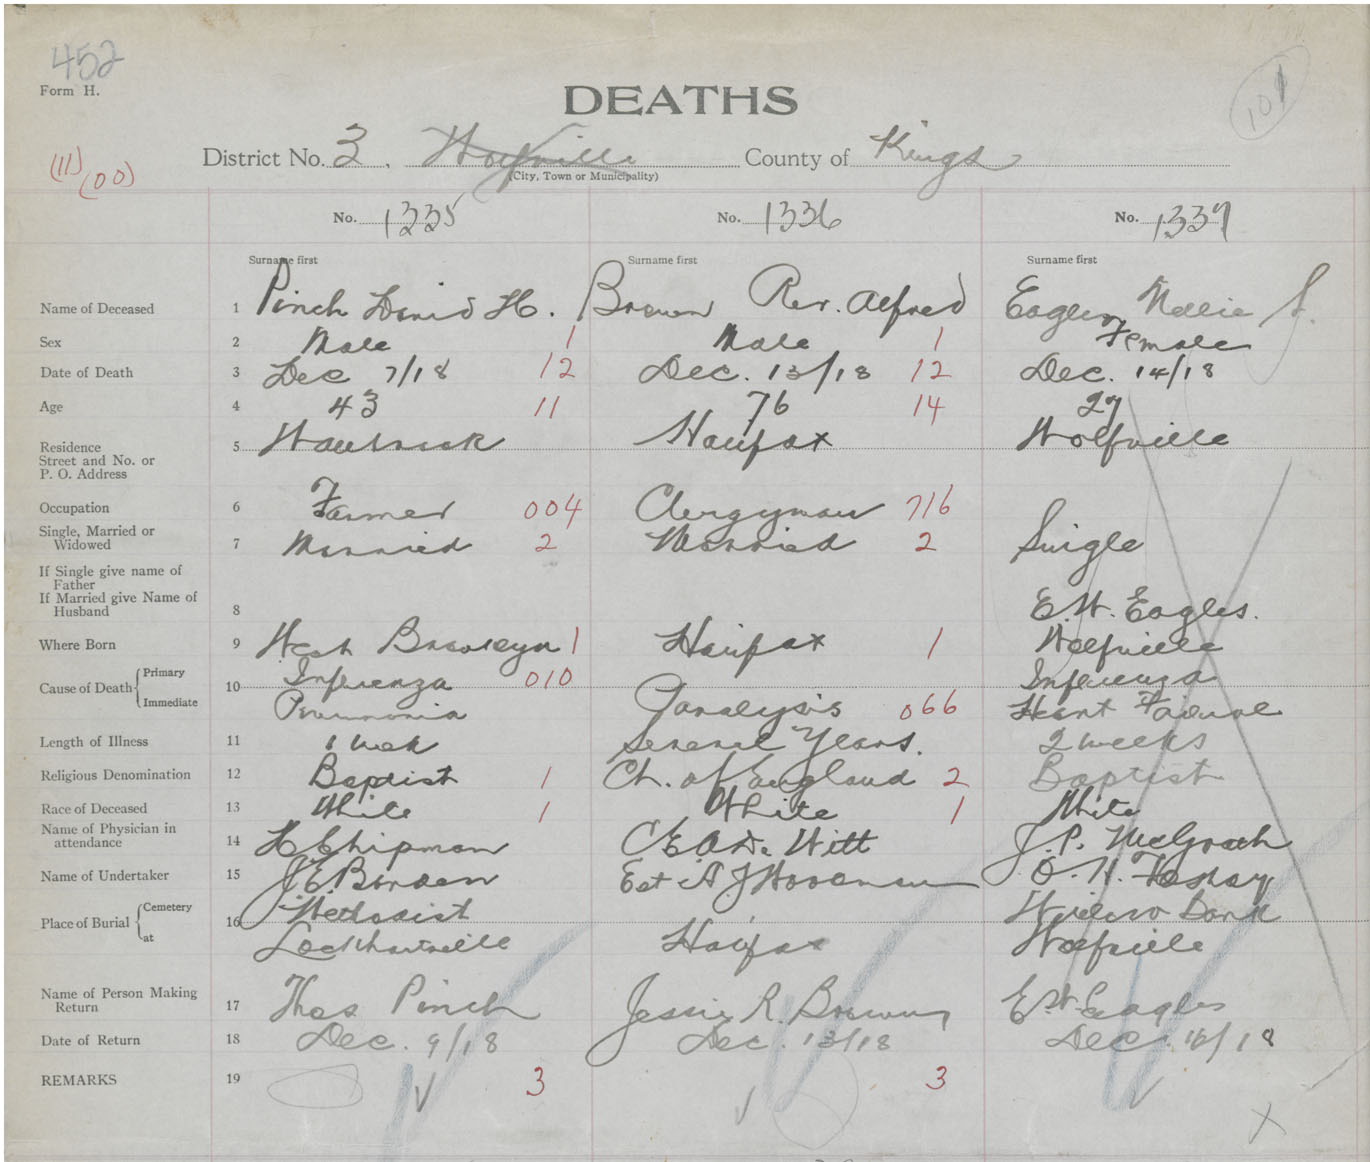 452
Form H.
101
DEATHS
(11)
(00)
District No. 3, Wolfville County of Kings
(City, Town or Municipality)
No. 1335 No. 1336 No. 1337
Surname first Surname first Surname first
Name of Deceased 1 Pinch David H. Brown Rev. Alfred Eagles Nellie S.
Sex 2 Male 1 Male 1 Female
Date of Death 3 Dec 7/18 12 Dec. 13/18 12 Dec. 14/18
Age 4 43 11 76 14 27
Residence 5 Halifax Wolfville
Street and No. or
P. O. Address
Occupation 6 Farmer 004 Clergyman 716
Single, Married or
Widowed 7 Married 2 Married 2 Single
If Single give name of
Father
If Married give Name of
Husband 8 E. W. Eagles.
Where Born 9 West Brooklyn 1 Halifax 1 Wolfville
Cause of Death Primary 10 Influenza 010 Influenza
Immediate Pneumonia Paralysis 066 Heart Failure
Length of Illness 11 1 week Several Years. 2 weeks
Religious Denomination 12 Baptist 1 Ch. of England 2 Baptist
Race of Deceased 13 White 1 White 1 White
Name of Physician in
attendance 14 H Chipman C E A De Witt J. P. McGrath
Name of Undertaker 15 J E Borden Est A J Woodman O. H. Foshay
Place of Burial Cemetery 16 Methodist Willow Bank
at Lockhartville Halifax Wolfville
Name of Person Making
Return 17 Thos Pinch Jessie R. Brown E W Eagles
Date of Return 18 Dec. 9/18 Dec. 13/18 Dec. 16/18
REMARKS 19 3 3